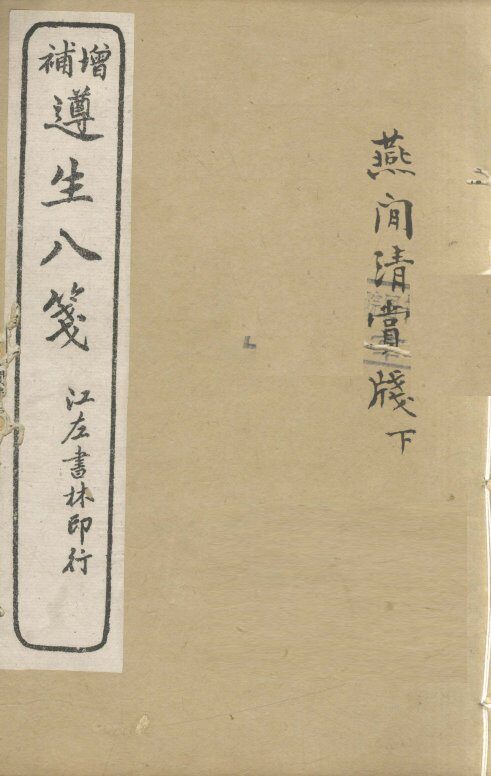 燕閒清賞牋下
增補
遵生八箋
江左書林印行